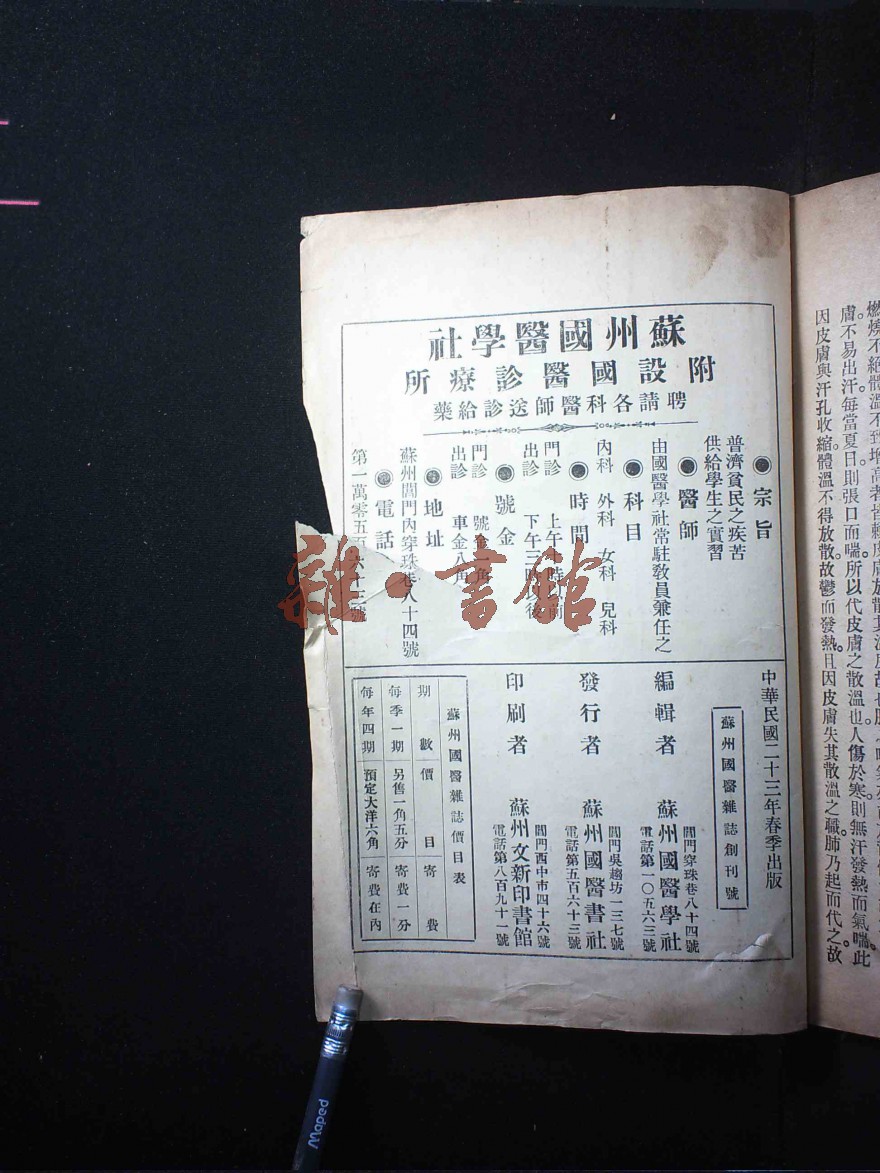 蘇州國醫學社
附設國醫診療所
聘請各科醫師送診給藥
宗旨
普濟貧民之疾苦
供給學生之實習
醫師
由國醫學社常駐敎員兼任之
科目
內科 外科 女科 兒科
時間
門診 上午
出診 下午三
號金
門診 號金一角
出診 車金八角
地址
蘇州閶門內穿珠巷八十四號
電話
第一萬零五百六十三號
中華民國二十三年春季出版
蘇州國醫雜誌創刊號
編輯者 蘇州國醫學社
閶門穿珠巷八十四號
電話第一〇五六三號
發行者 蘇州國醫書社
閶門吳趨坊一三七號
電話第五百六十三號
印刷者 蘇州文新印書館
閶門西中市四十六號
電話第八百九十一號
蘇州國醫雜誌價目表
期數 價目 寄費
每季一期 另售一角五分 寄費一分
每年四期 預定大洋六角 寄費在內
膚不易出汗。每當夏日則張口而喘。所以代皮膚之散溫也。人傷於寒則無汗發熱而氣喘。此
因皮膚與汗孔收縮體溫不得放散。故鬱而發熱。且因皮膚失其散溫之職。肺乃起而代之。故
雜·書館
Maped